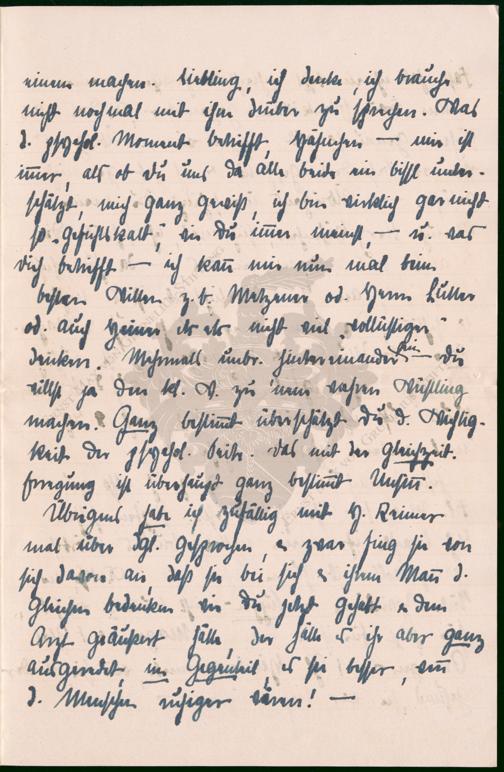 einem machen. Liebling, ich denke, ich brauche
nicht nochmal mit ihm drüber zu sprechen. Was
d. psychol. Moment betrifft, — mir ist
immer, als ob Du uns da alle beide ein bissl unter-
schätzt, mich ganz gewiß, ich bin wirklich gar nicht
so "gefühlskalt", wie Du immer meinst, — u. was
Dich betrifft — ich kann mir nun mal beim
besten Willen z. b. Metzener od. Herrn Lutter
od. auch Heiner etc etc nicht viel "wollüstiger"
denken. Mehrmals unbr. hintereinander — Du
willst ja den kl. V. zu 'nem wahren Wüstling
machen. Ganz bestimmt überschätzt Du d. Wichtig-
keit der psychol. Seite. Das mit der gleichzeit.
Erregung ist überhaupt ganz bestimmt Unsinn.
Übrigens habe ich zufällig mit H. Reimer
mal über dgl. gesprochen, u zwar fing sie von
sich davon an, daß sie bei sich u ihrem Mann d.
gleichen Bedenken wie Du jetzt gehabt u dem
Arzt geäußert hätte, der hätte es ihr aber ganz
ausgeredet, im Gegenteil, es sei besser, wenn
d. Menschen ruhiger wären! —